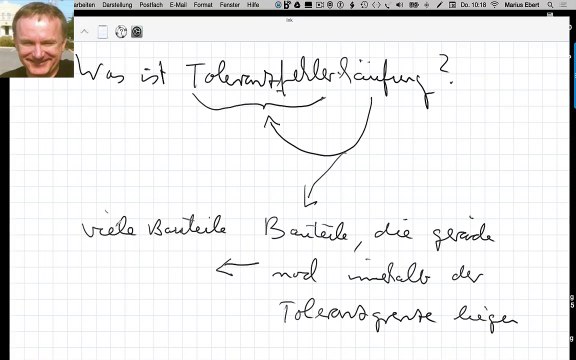 earbeiten Darstellung Postfach E-Mail Format Fenster Hilfe Do. 10:18 Marius Ebert
Ink
Was ist Toleranzfellerhäufung?
viele Bauteile Bauteile, die gerade
noch innerhalb der
Toleranzgrenze liegen